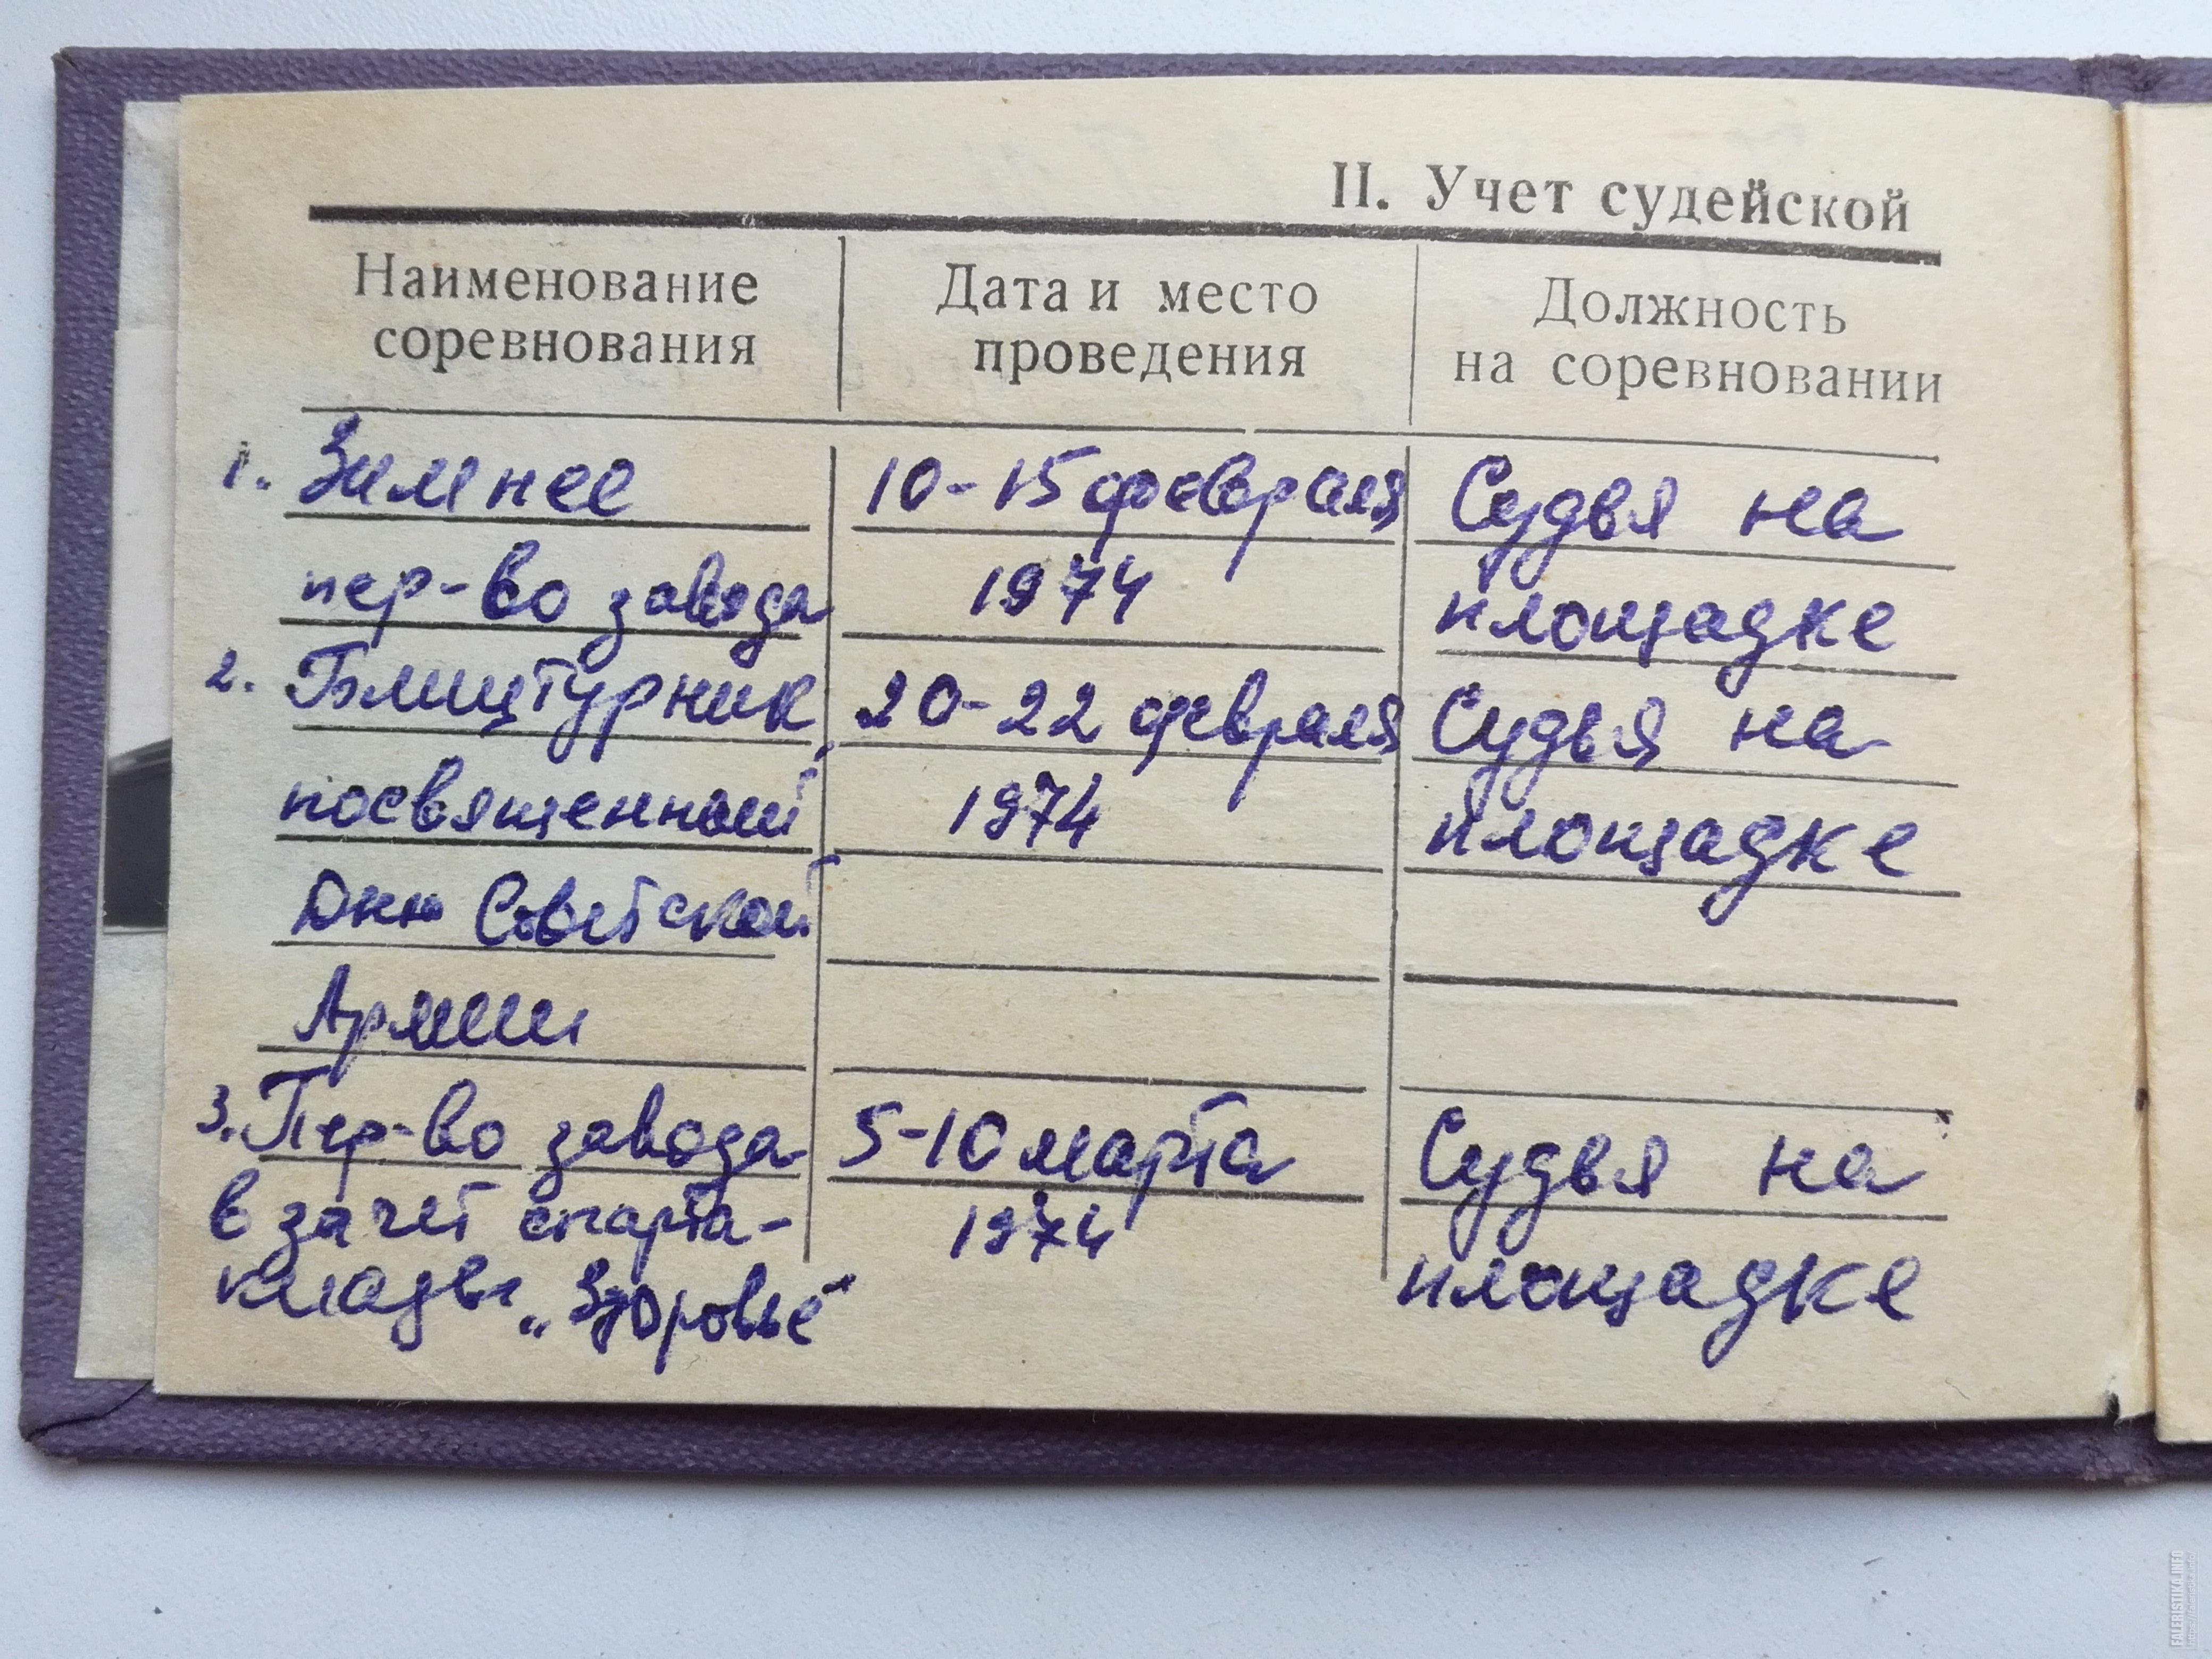 II. Учет судейской
Наименование соревнования
Дата и место проведения
Должность на соревновании
1. Зимнее
10-15 февраля
Судья на
пер-во завода
1974
площадке
2. Блицтурник,
20-22 февраля
Судья на
посвященный
1974
площадке
Дню Советской
Армии
3. Пер-во завода
5-10 марта
Судья на
в зачет спарта-
1974
киады „Здоровье"
площадке
FALERISTIKA.INFO